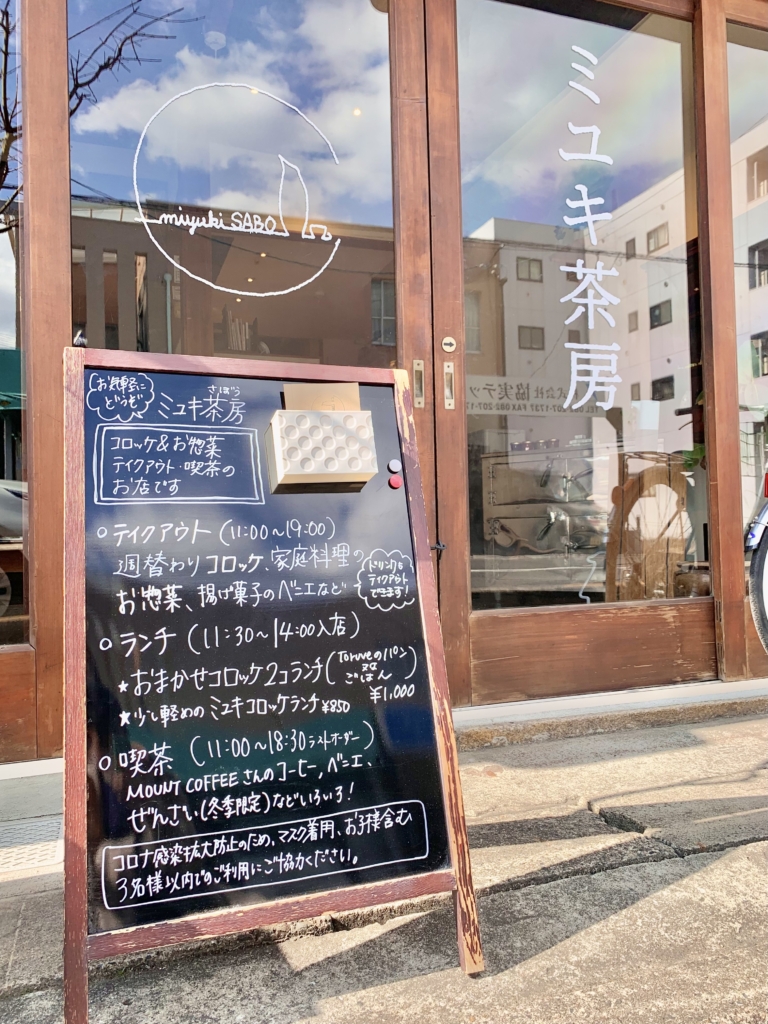 miyuki SABO
ミユキ茶房
お気軽に
どうぞ
さぼう
ミユキ茶房
コロッケ&お惣菜
テイクアウト・喫茶の
お店です
○テイクアウト(11:00〜19:00)
週替わりコロッケ、家庭料理の
お惣菜、揚げ菓子のベニエなど
ドリンクも
テイクアウト
できます!
○ランチ(11:30〜14:00入店)
★おまかせコロッケ2コランチ(Toruveのパン
又は
ごはん)
¥1,000
★少し軽めのミユキコロッケランチ¥850
○喫茶(11:00〜18:30ラストオーダー)
MOUNT COFFEEさんのコーヒー、ベニエ、
ぜんざい(冬季限定)などいろいろ!
コロナ感染拡大防止のため、マスク着用、お子様含む
3名様以内でのご利用にご協力ください。
協実テッ